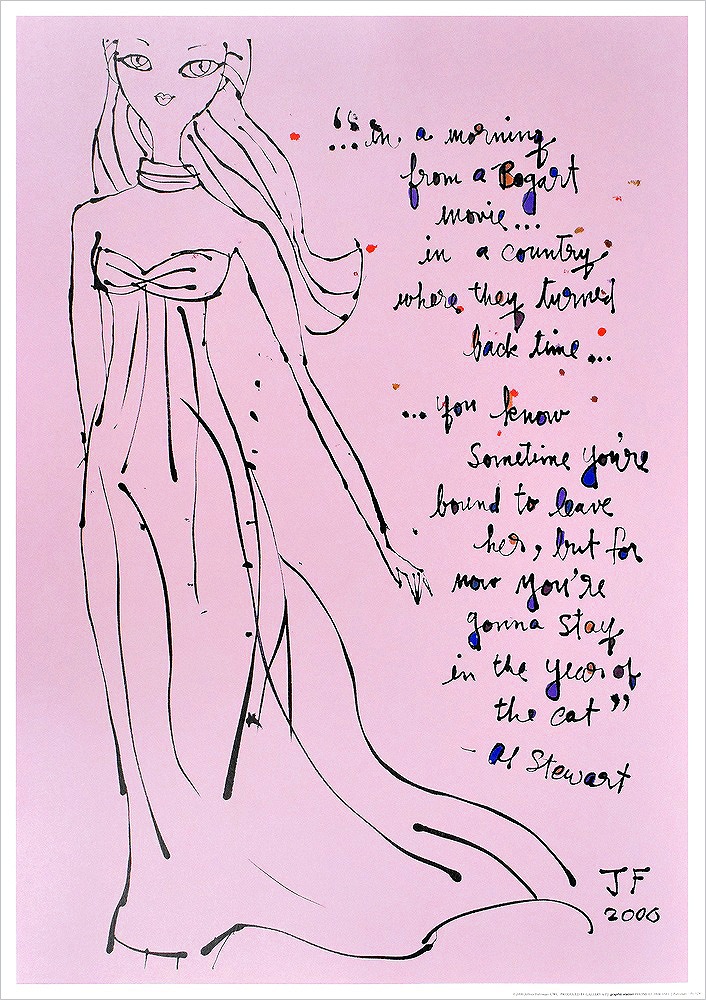 "...in a morning
from a Bogart
movie...
in a country
where they turned
back time...
...you know
Sometime you're
bound to leave
her, but for
now you're
gonna stay
in the year of
the cat"
- Al Stewart
JF
2006